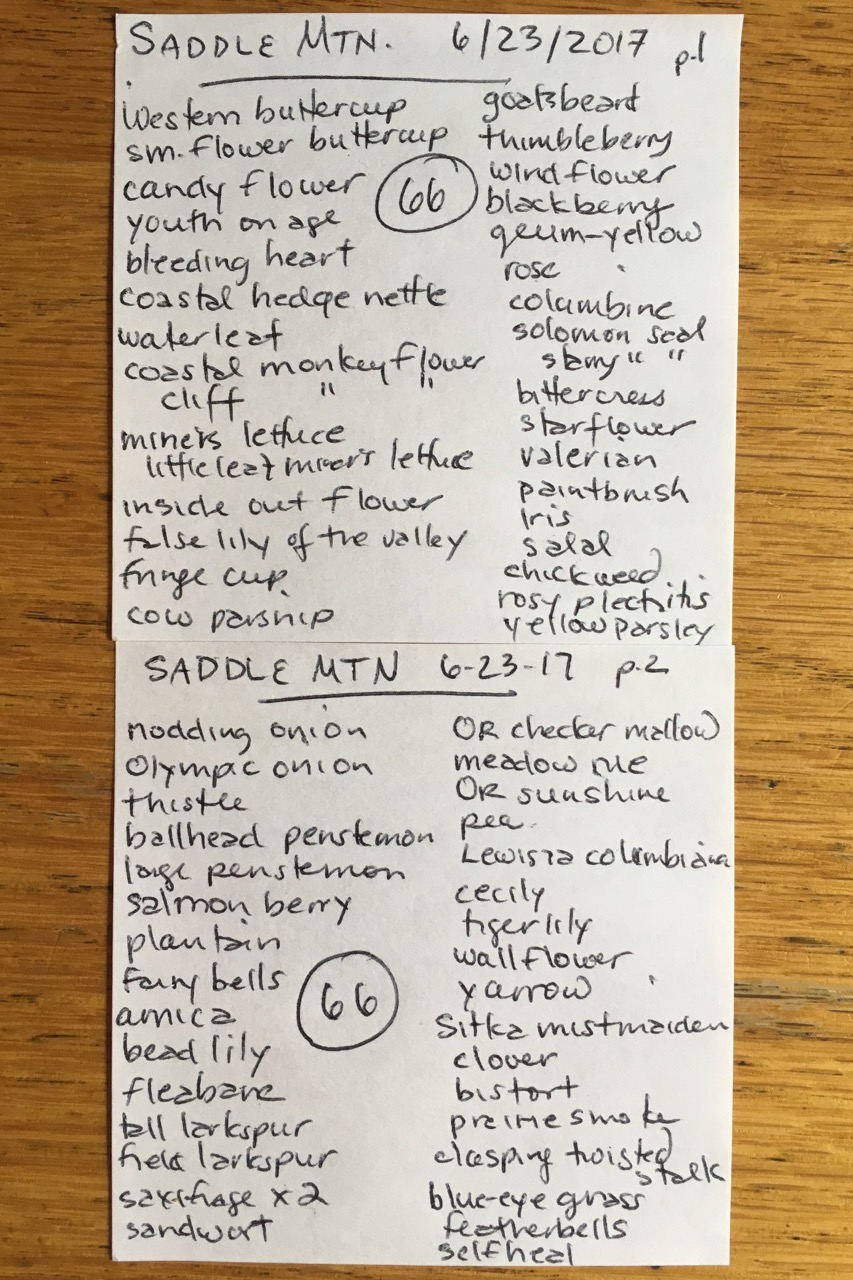 SADDLE MTN. 6/23/2017 p.1
Western buttercup
sm. flower buttercup
candy flower
youth on age
bleeding heart
coastal hedge nettle
waterleaf
coastal monkey flower
cliff " "
miner's lettuce
littleleaf miner's lettuce
inside out flower
false lily of the valley
fringe cup
cow parsnip
66
goatsbeard
thimbleberry
windflower
blackberry
geum-yellow
rose
columbine
solomon seal
starry " "
bittercress
starflower
valerian
paintbrush
Iris
salal
chickweed
rosy plectritis
yellow parsley
SADDLE MTN 6-23-17 p.2
nodding onion
Olympic onion
thistle
ballhead penstemon
large penstemon
salmon berry
plantain
fairy bells
arnica
bead lily
fleabane
tall larkspur
field larkspur
saxifrage x2
sandwort
66
OR checker mallow
meadow rue
OR sunshine
pea
Lewisia columbiana
cecily
tiger lily
wallflower
yarrow
Sitka mistmaiden
clover
bistort
prairie smoke
clasping twisted
stalk
blue-eye grass
featherbells
selfheal